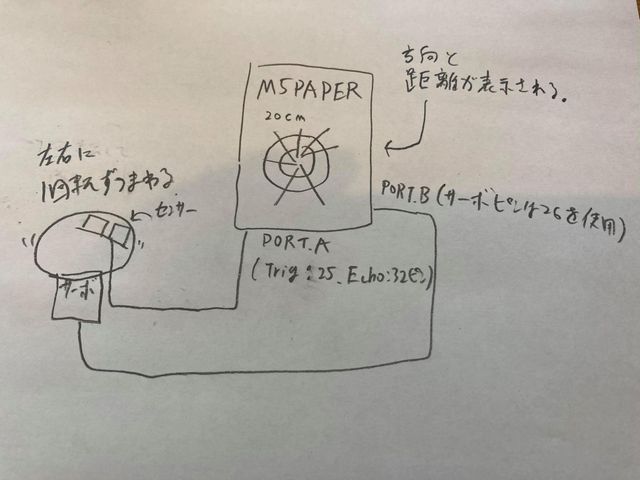 方向と
距離が表示される。
M5PAPER
20cm
左右に
1回転ずつまわる
センサー
サーボ
PORT.B (サーボピンは26を使用)
PORT.A
(Trig:25、Echo:32ピン)